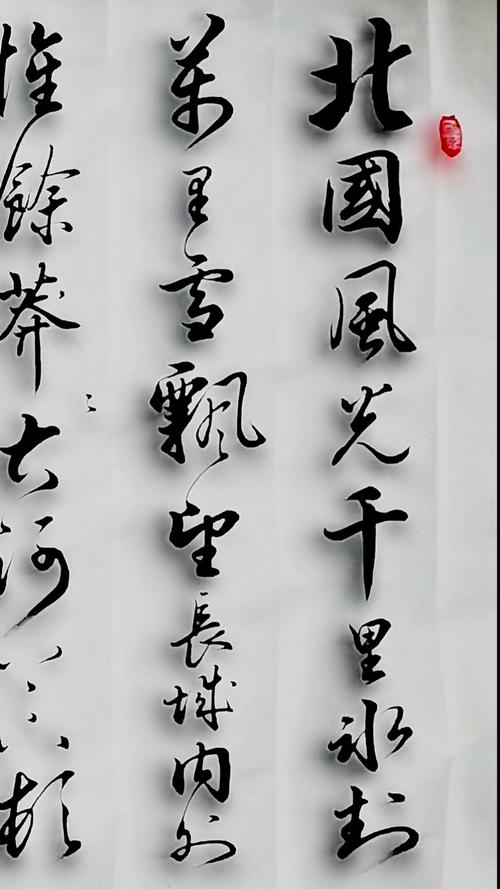 北國風光千里冰封
萬里雪飄望長城内外
惟餘莽〻大河上下頓